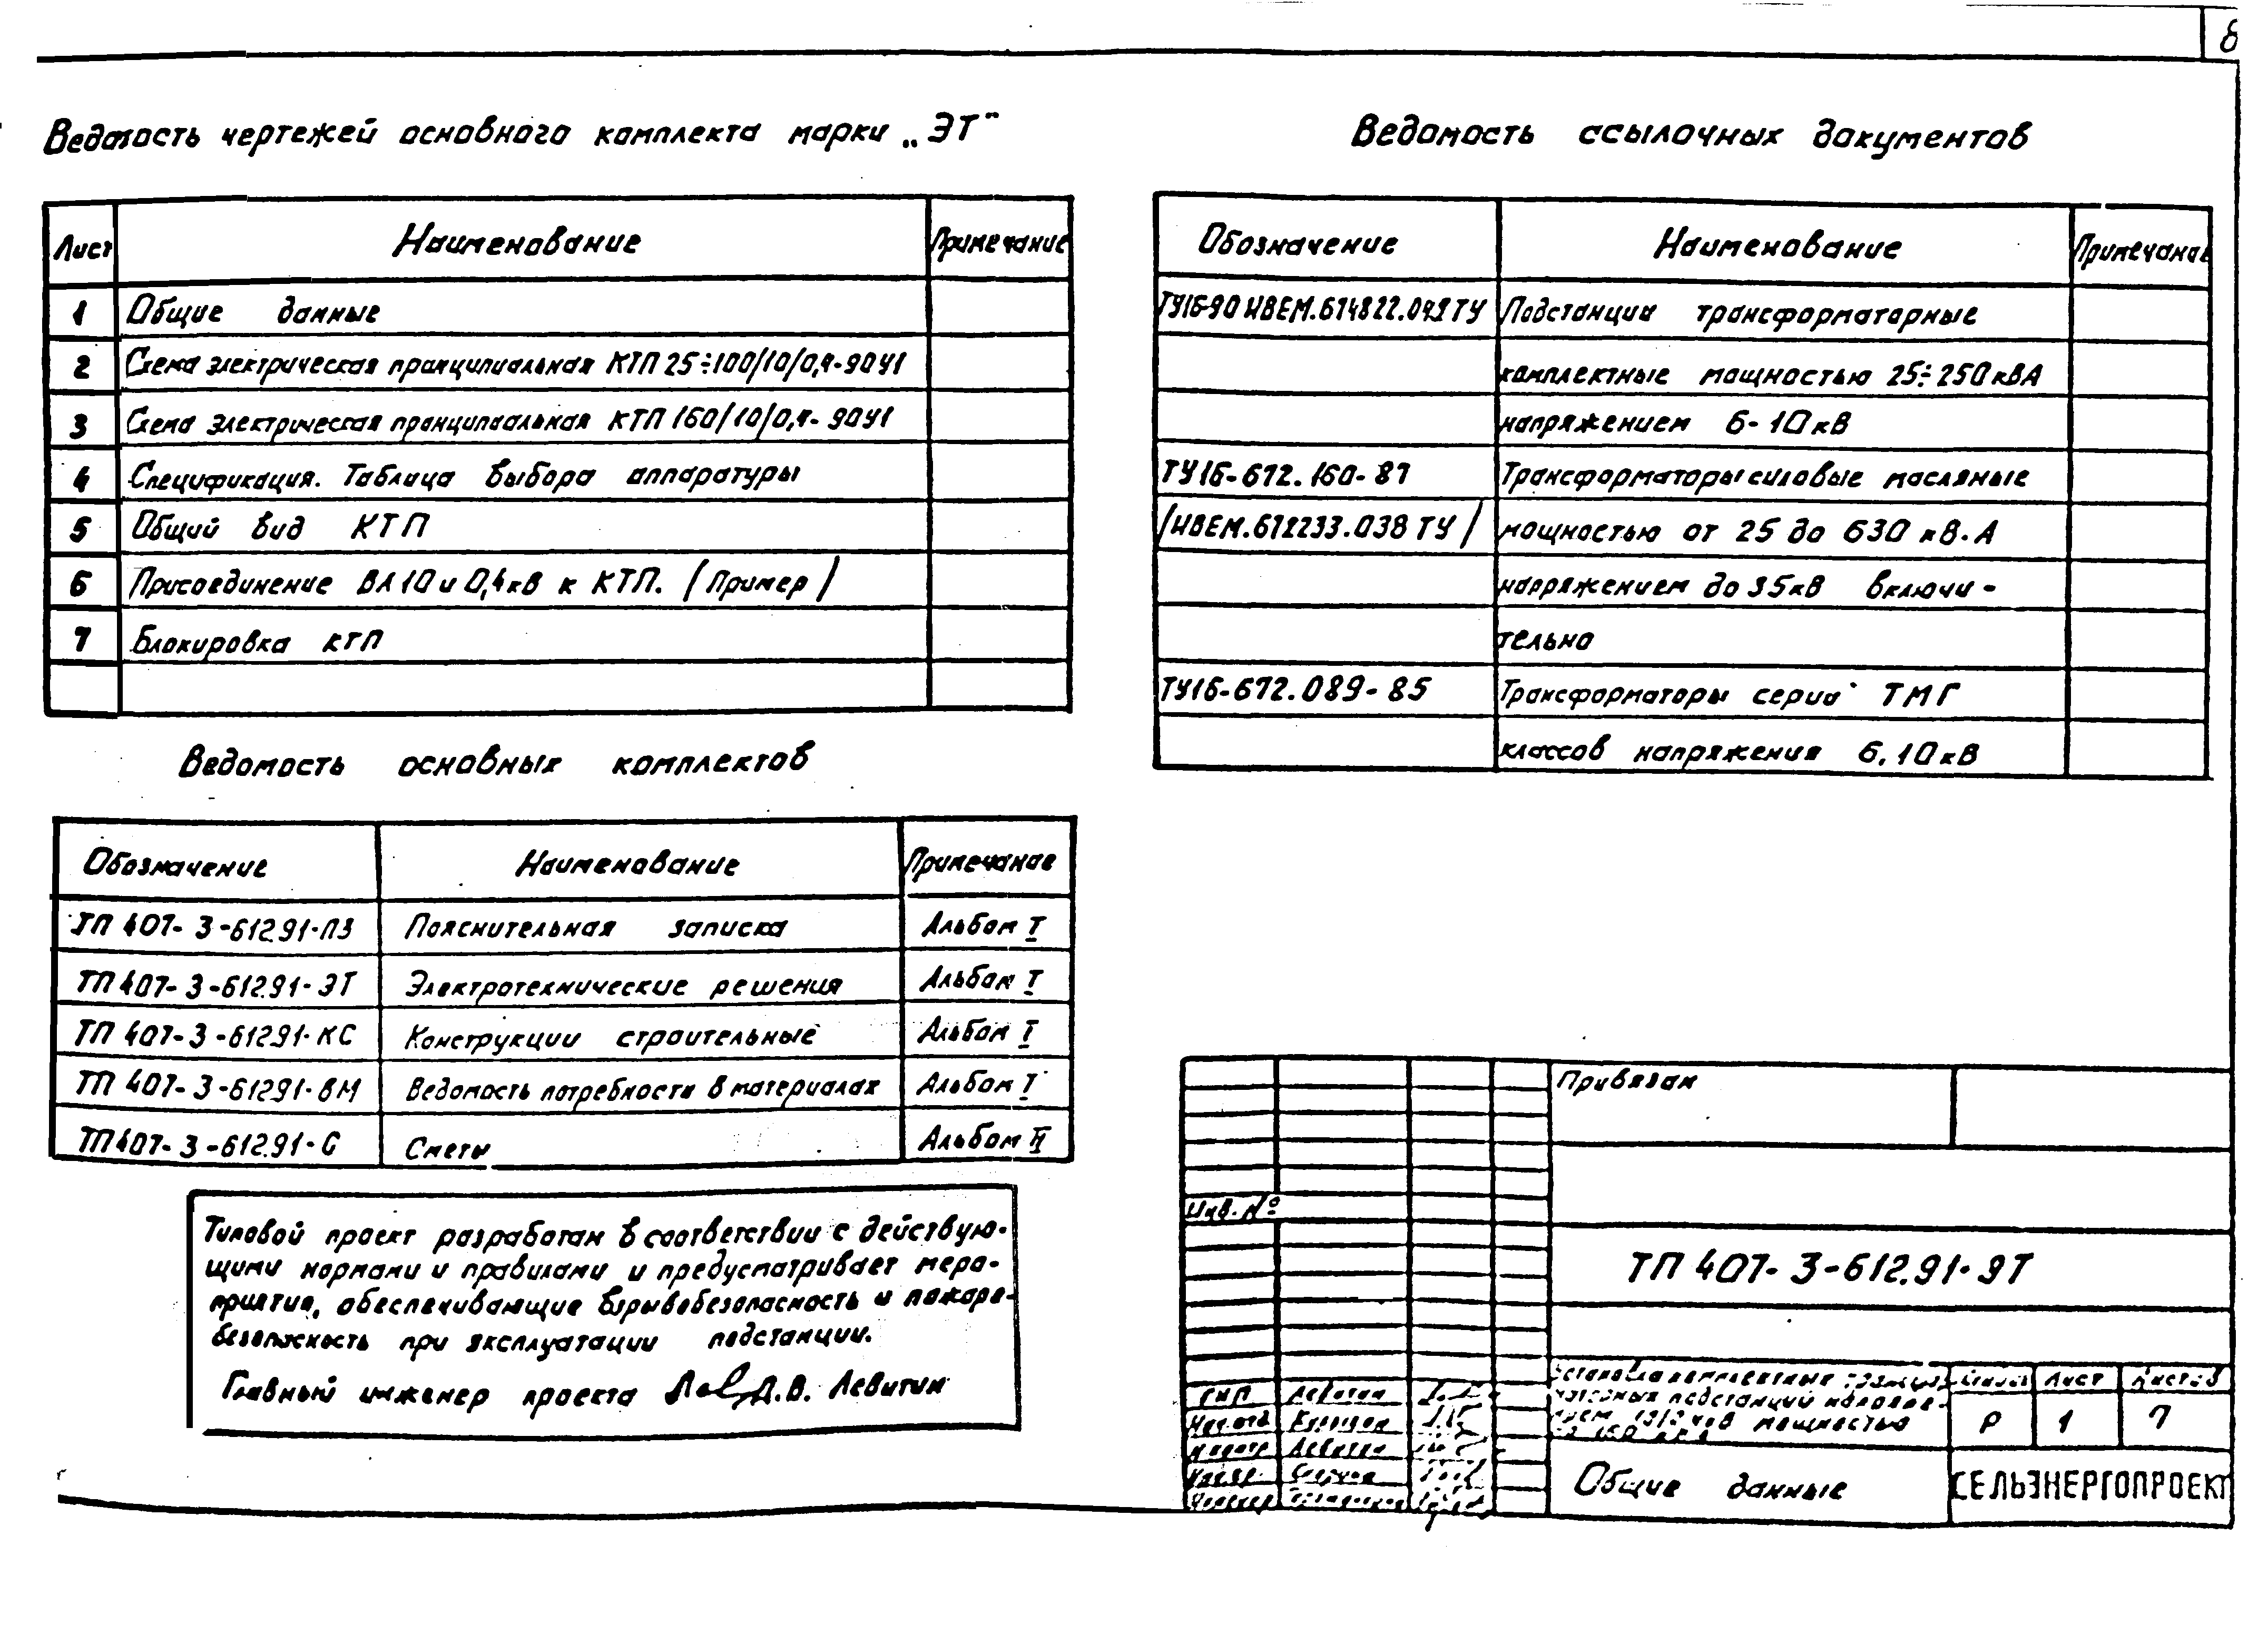 8
Ведомость чертежей основного комплекта марки „ЭТ"
Лист Наименование Примечание
1 Общие данные
2 Схема электрическая принципиальная КТП 25÷100/10/0,4-90У1
3 Схема электрическая принципиальная КТП 160/10/0,4-90У1
4 Спецификация. Таблица выбора аппаратуры
5 Общий вид КТП
6 Присоединение ВЛ 10 и 0,4 кВ к КТП. /Пример/
7 Блокировка КТП
Ведомость основных комплектов
Обозначение Наименование Примечание
ТП 407-3-612.91-ПЗ Пояснительная записка Альбом I
ТП 407-3-612.91-ЭТ Электротехнические решения Альбом I
ТП 407-3-612.91-КС Конструкции строительные Альбом I
ТП 407-3-612.91-ВМ Ведомость потребности в материалах Альбом I
ТП 407-3-612.91-С Сметы Альбом II
Типовой проект разработан в соответствии с действую-
щими нормами и правилами и предусматривает меро-
приятия, обеспечивающие взрывобезопасность и пожаро-
безопасность при эксплуатации подстанции.
Главный инженер проекта Д.В. Левитин
Ведомость ссылочных документов
Обозначение Наименование Примечание
ТУ16-90 ИВЕМ.674822.042 ТУ Подстанции трансформаторные
комплектные мощностью 25÷250 кВА
напряжением 6-10 кВ
ТУ16-672.160-87 Трансформаторы силовые масляные
/ИВЕМ.672233.038 ТУ/ мощностью от 25 до 630 кВ.А
напряжением до 35 кВ включи-
тельно
ТУ16-672.089-85 Трансформаторы серии ТМГ
классов напряжения 6, 10 кВ
Привязан
Инв. №
ТП 407-3-612.91-ЭТ
подстанций
мощностью
Лист Листов
Р 1 7
ГИП Левитин
Левитин
Общие данные
СЕЛЬЭНЕРГОПРОЕКТ